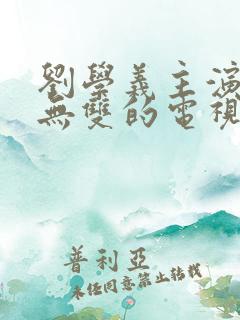 劉學義主演
無雙的電視
普利亞
未經同意禁止轉載